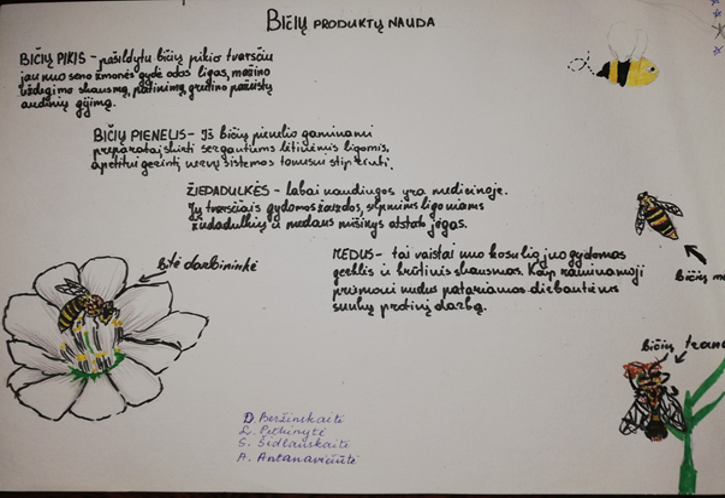 BIČIŲ PRODUKTŲ NAUDA
BIČIŲ PIKIS – pašildytu bičių pikio tvarsčiu
jau nuo seno žmonės gydė odos ligas, mažino
uždegimo skausmą, patinimą, greitino pažeistų
audinių gijimą.
BIČIŲ PIENELIS – Iš bičių pienelio gaminami
preparatai skirti sergantiems lėtinėmis ligomis,
apetitui gerinti, nervų sistemos tonusui stiprinti.
ŽIEDADULKĖS – labai naudingos yra medicinoje.
Jų tvarsčiais gydomos žaizdos, silpniems ligoniams
žiedadulkių ir medaus mišinys atstato jėgas.
MEDUS – tai vaistai nuo kosulio, juo gydomas
gerklės ir krūtinės skausmas. Kaip raminamoji
priemonė medus patariamas dirbantiems
sunkų protinį darbą.
bitė darbininkė
bičių
bičių
D. Beržinskaitė
L. Petkinytė
S. Šidlauskaitė
A. Antanavičiūtė